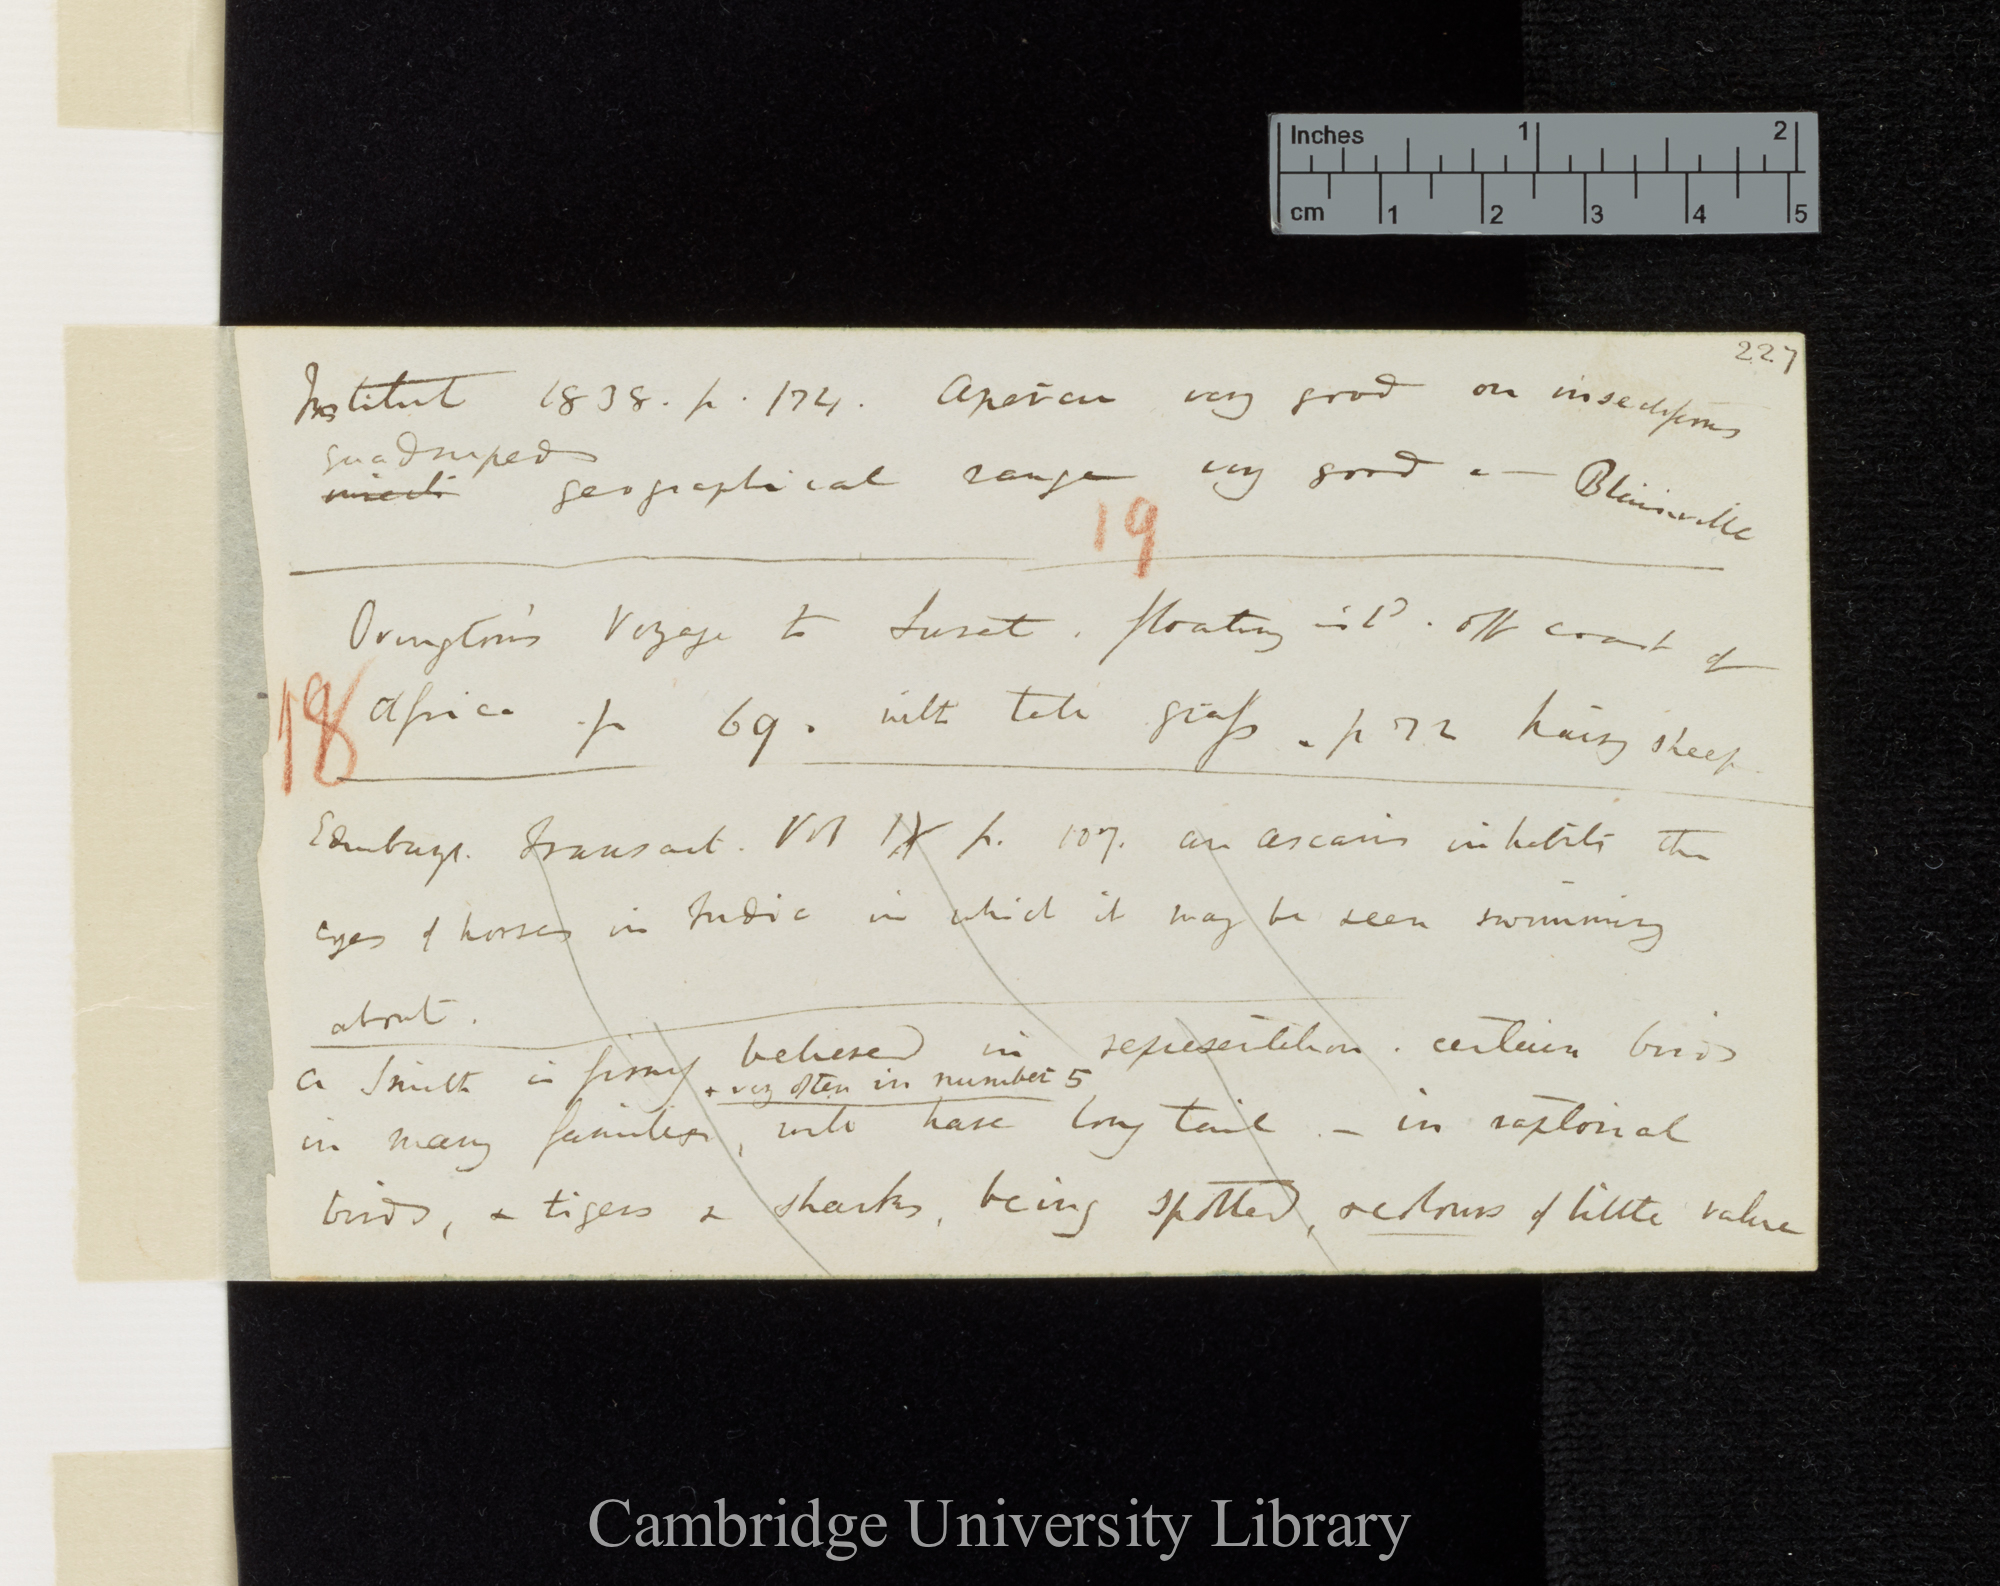 Inches 1 2
cm 1 2 3 4 5
227
Institut 1838. p. 174. Aperçu very good on insectiforms
quadrupeds
insects geographical range very good — Blainville
19
Ovington's Voyage to Surat. floating isld. off coast of
18
Africa p 69. with tall grass. p 72 hairy sheep
Edinburgh. Transact. Vol IX p. 107. an ascaris inhabits the
eyes of horses in India in which it may be seen swimming
about.
A Smith is firmly believed in representation. certain birds
& very often in number 5
in many families, will have long tail — in raptorial
birds, & tigers & sharks, being spotted, & colours of little value
Cambridge University Library